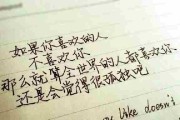 如果你喜欢的人
不喜欢你
那么就算全世界的人都喜欢你
还是会觉得很孤独吧
like doesn't